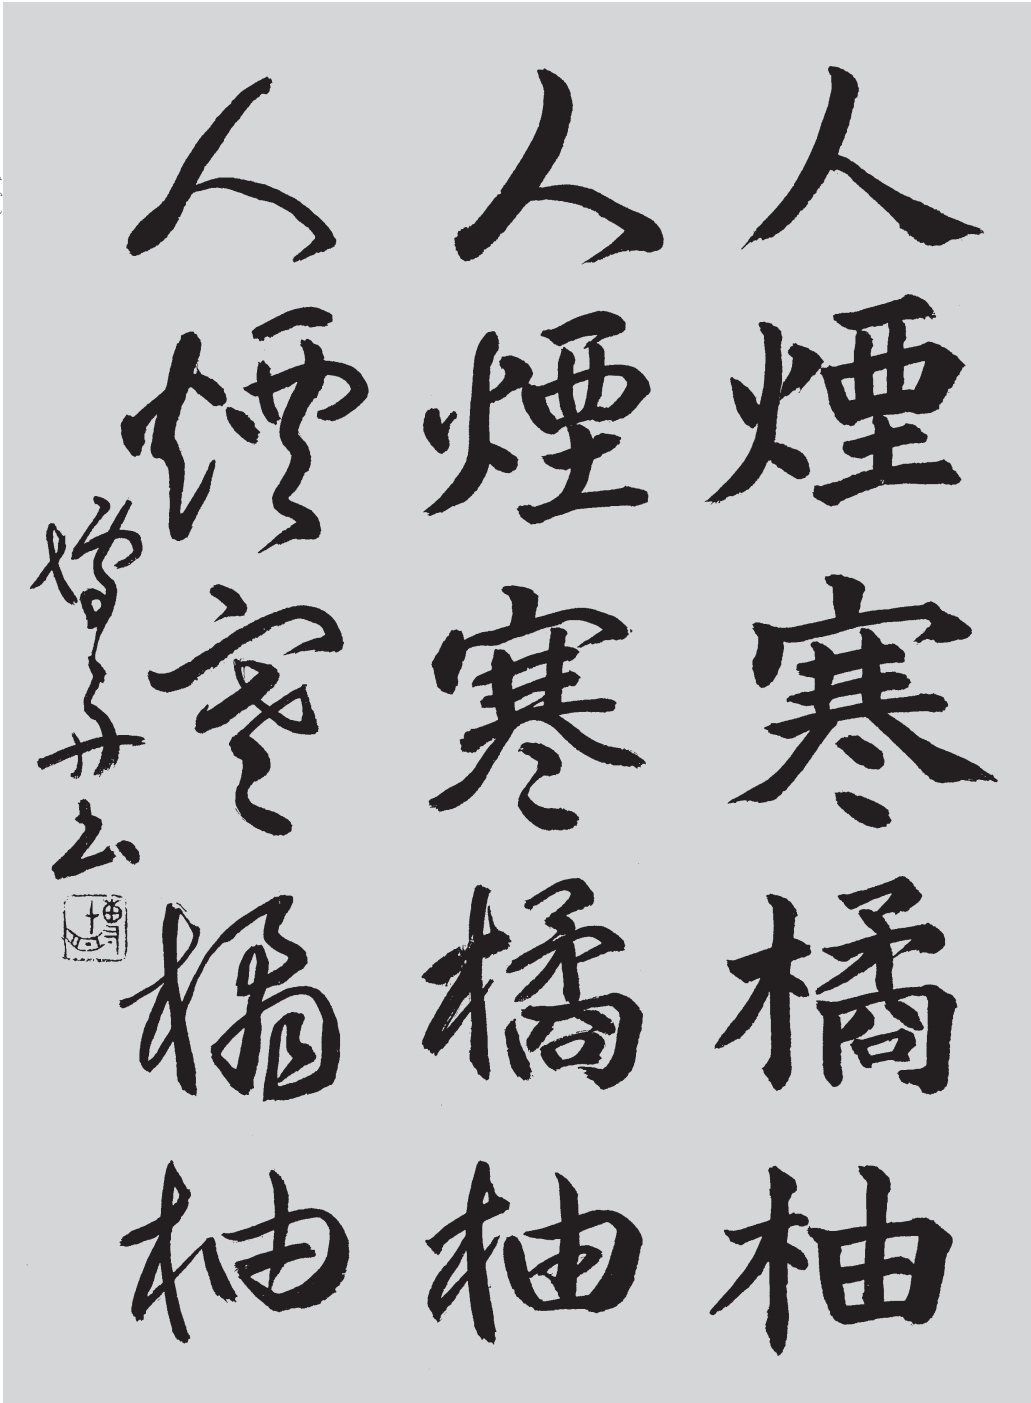 人煙寒橘柚
人煙寒橘柚
人煙寒橘柚
博舟書